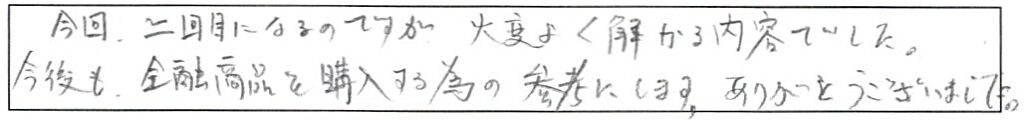 今回、二回目になるのですが、大変よく解かる内容でした。
今後も、金融商品を購入する為の参考にします。ありがとうございました。